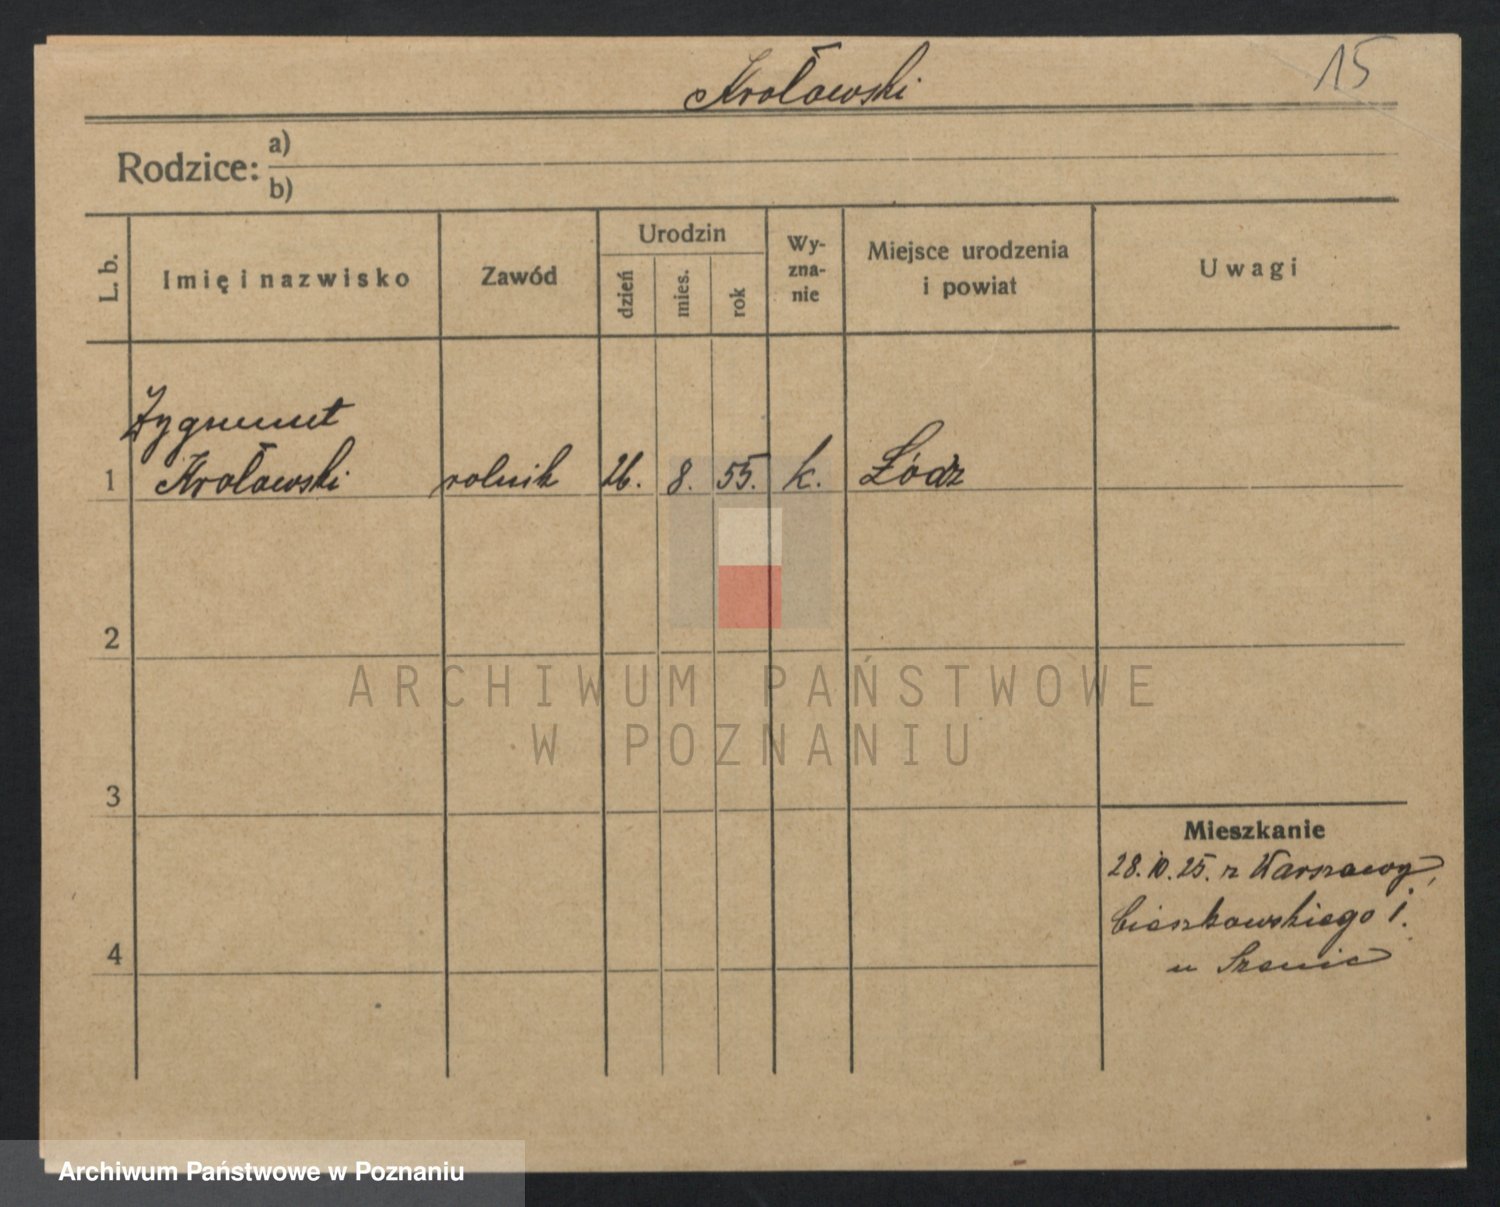 Krołowski
15
Rodzice: a)
b)
L. b.
Imię i nazwisko
Zawód
Urodzin
dzień
mies.
rok
Wy-
zna-
nie
Miejsce urodzenia
i powiat
Uwagi
Zygmunt
1 Krołowski rolnik 26. 8. 55. k. Łódz
2
ARCHIWUM PAŃSTWOWE
W POZNANIU
3
Mieszkanie
28.10.25. z Warszawy,
Cieszkowskiego 1.
4
u
Archiwum Państwowe w Poznaniu